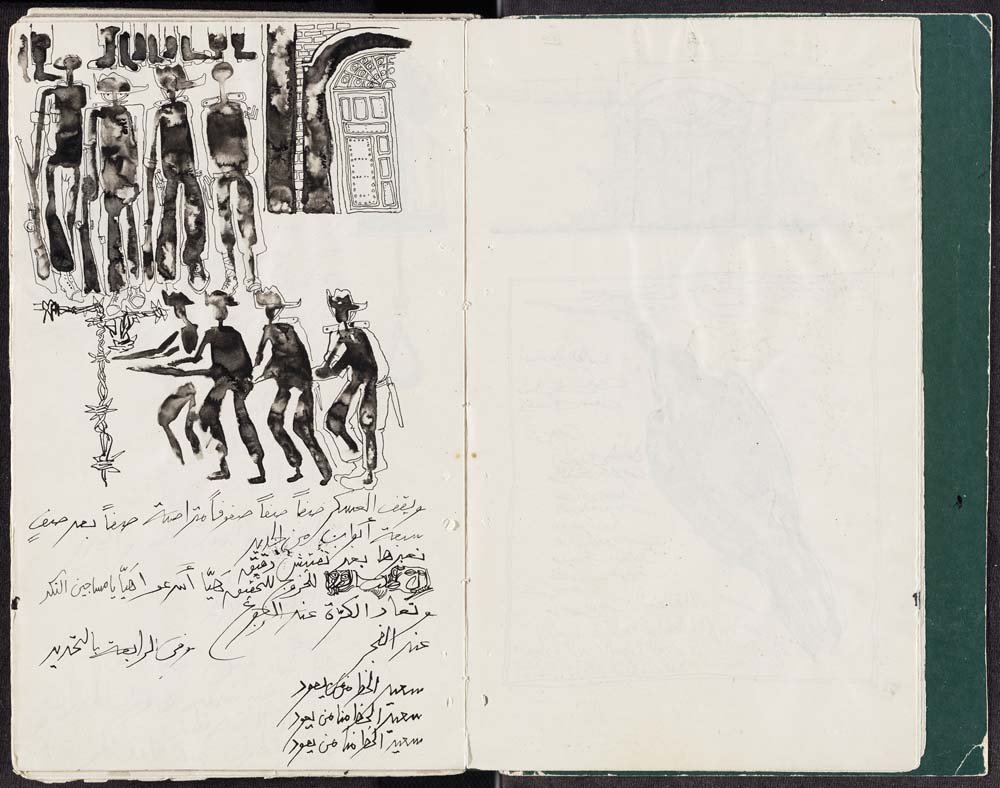 ويقف العسكر صفاً صفاً صفوفاً متراصة صفاً بعد صف
سبعة أبواب من الحديد
نعبرها بعد تفتيش دقيق
للخروج للتحقيق هيّا أسرعوا هيّا يا مساجين النكد
وتعاد الكرّة عند الرجوع
عند الفجر
وفي الرابعة بالتحديد
سعيد الحظ من يعود
سعيد الحظ منا من يعود
سعيد الحظ منا من يعود